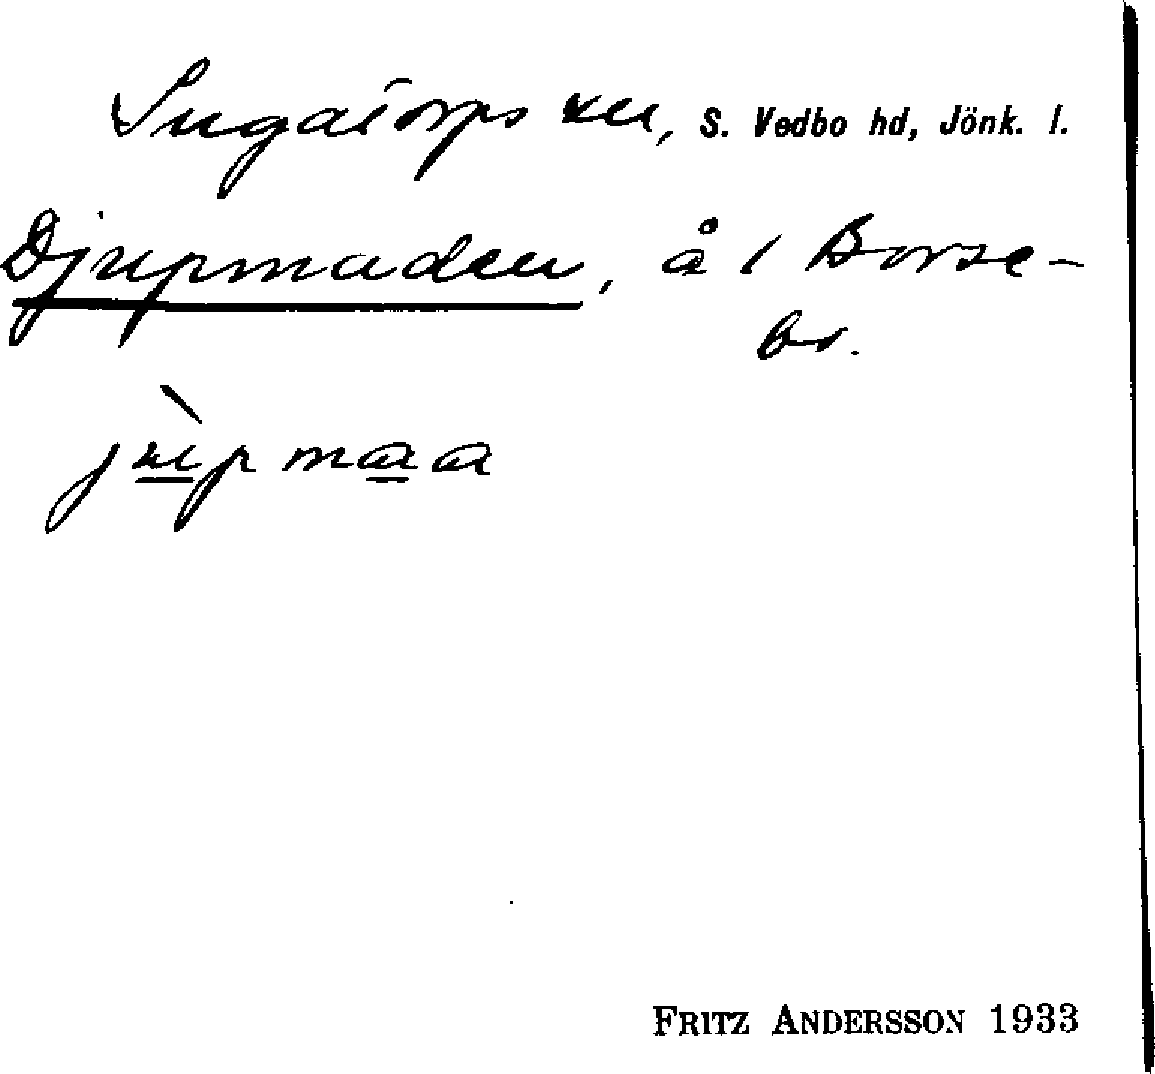 Ingatorps sn, S. Vedbo hd, Jönk. l.
Djupmaden, å / Borse-
bo.
jùpmaa
FRITZ ANDERSSON 1933